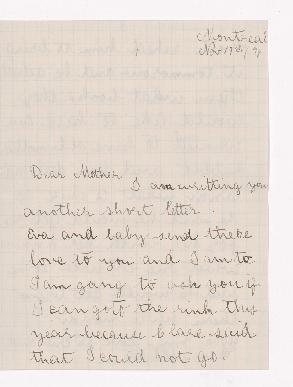 Montreal
Nov 19th/9
Dear Mother
I am writting you
another short letter.
Eva and baby send there
love to you and I am to.
I am gony to ask you if
I can go to the rink this
year because said
that I could not go.